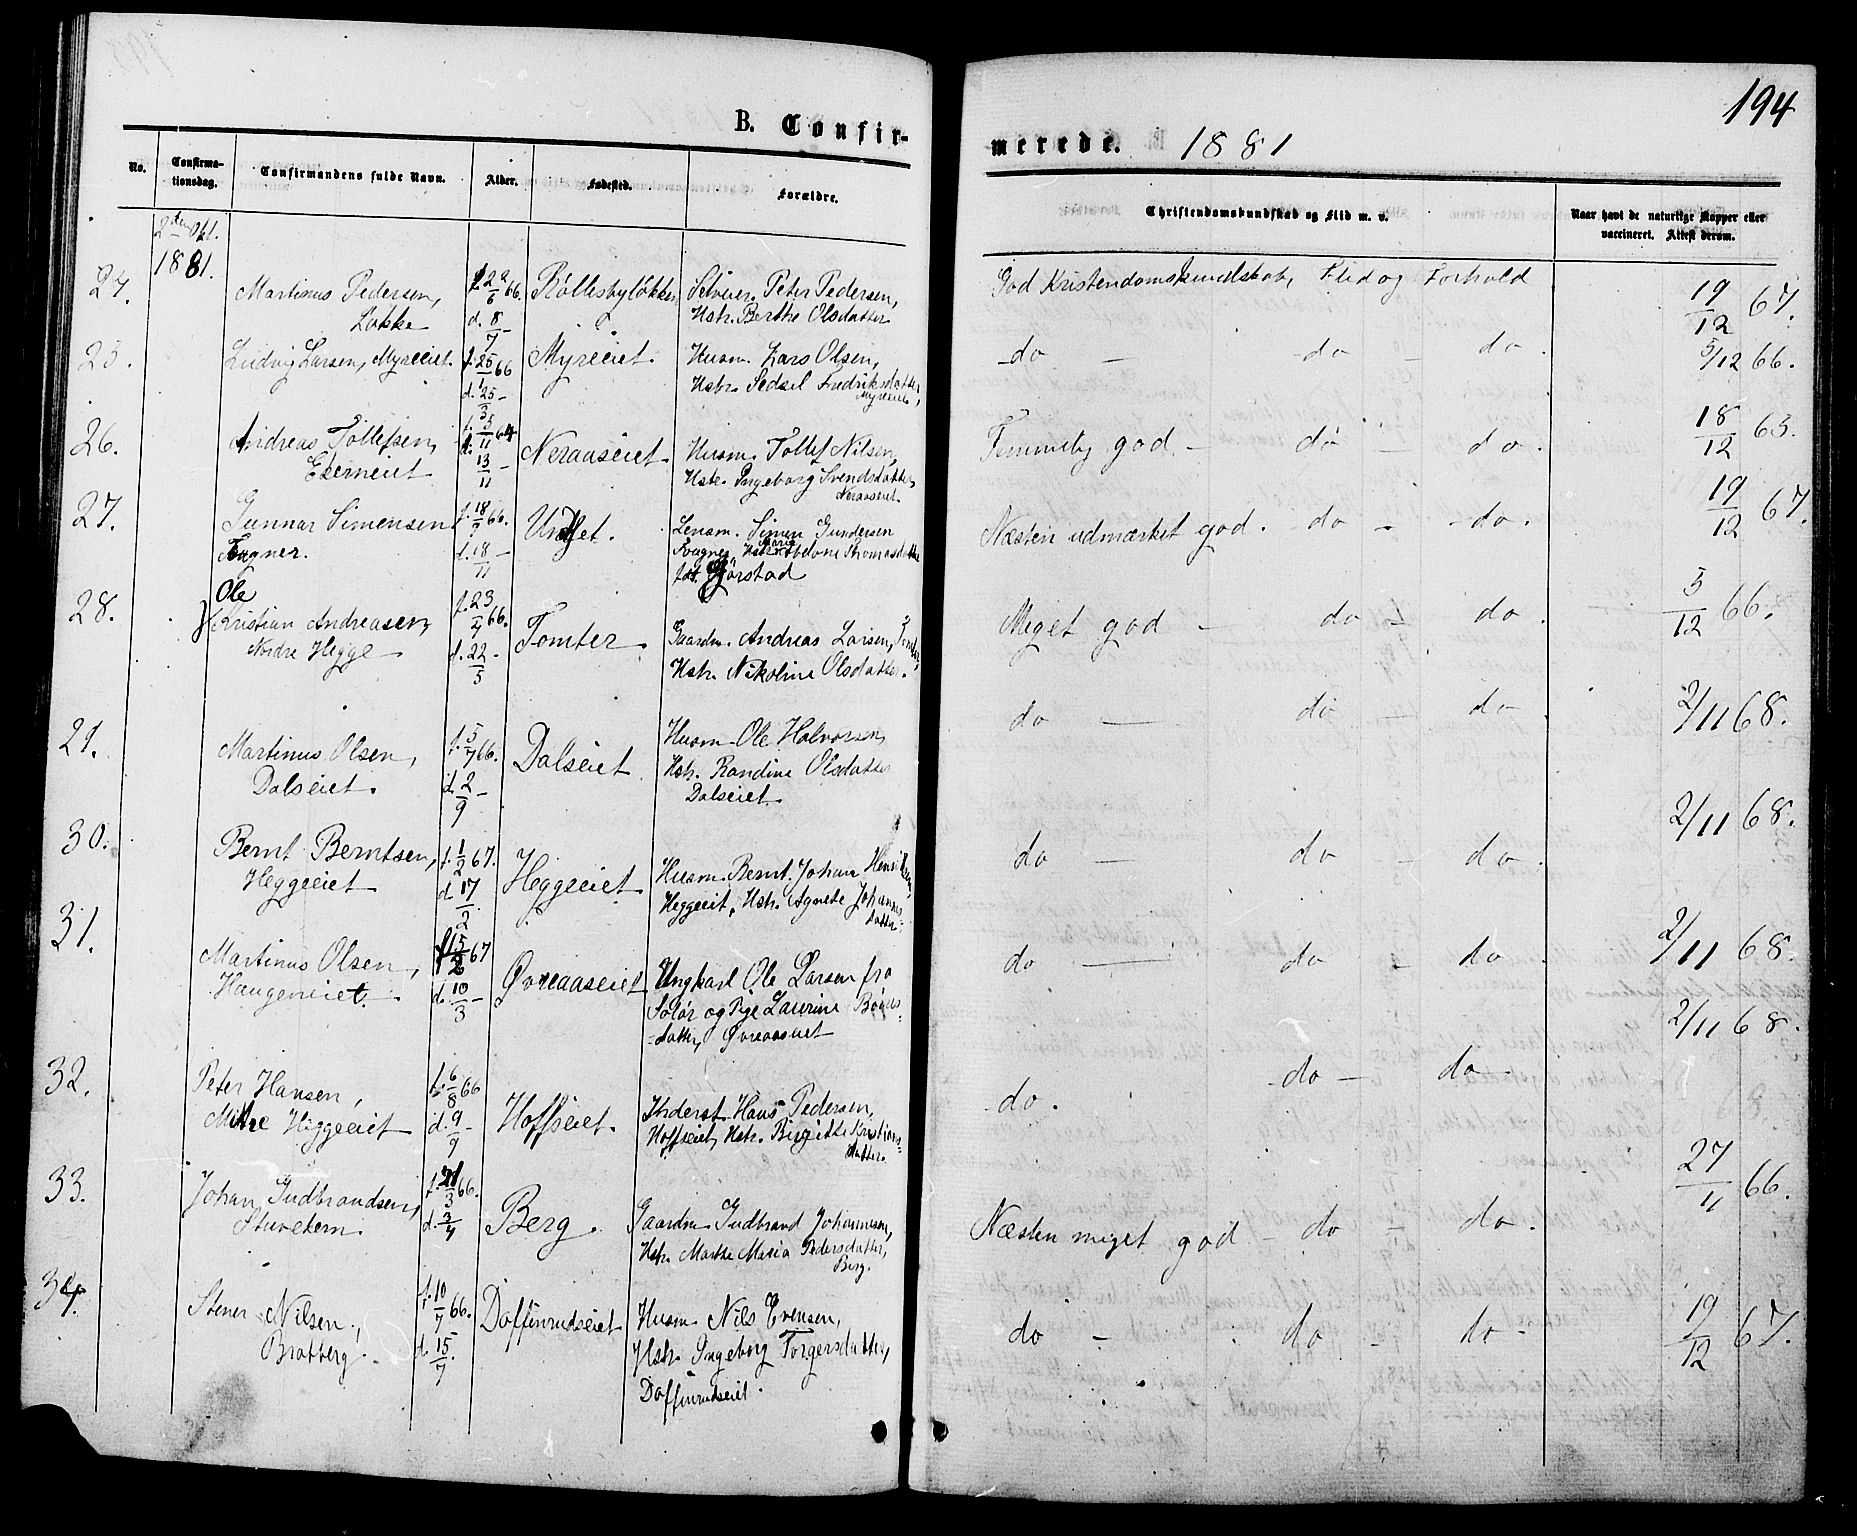 194
B. Confir-
merede. 1881
No.
Confirma-
tionsdag.
Confirmandens fulde Navn.
Alder.
Fødested.
Forældre.
Christendomskundskab og Flid m. v.
Naar havt de naturlige Kopper eller
vaccineret. Attest derom.
2den Okt.
1881.
24.
Martinus Pedersen,
Løkke
f. 22/6 66.
d. 8/7 -
Röllesbylökken
Selveier Peter Pedersen,
Hstr. Berthe Olsdatter
God Kristendomskundskab, Flid og Forhold
19/12 67.
25.
Ludvig Larsen, Myreeiet.
f. 25/1 66
d. 25/3 -
Myreeiet.
Husm. Lars Olsen,
Hstr. Sedsel Fredriksdatter,
Myreeiet
do — do — do.
5/12 66.
26.
Andreas Tollefsen,
Ekerneiet
f. 5/11 64
d. 13/11 -
Neraaseiet
Husm. Tollef Nilsen,
Hstr. Ingeborg Svendsdatter,
Neraaseiet.
Temmelig god - do - do.
18/12 63.
27.
Gunnar Simensen
Fougner.
f. 18/9 66.
d. 18/11 -
Lensm. Simen Gundersen
Fougner, Hstr. Marie Abelone Thomasdatter
fdt. Gjörstad
Næsten udmærket god. - do - do.
19/12 67.
28.
Ole
Kristian Andreasen,
Nordre Hegge
f. 23/4 66.
d. 22/5 -
Tomter
Gaardm. Andreas Larsen, Tomter,
Hstr. Nikoline Olsdatter.
Meget god - do - do.
5/12 66.
29.
Martinus Olsen,
Dalseiet.
f. 5/7 66.
d. 2/9 -
Dalseiet
Husm. Ole Halvorsen,
Hstr. Randine Olsdatter
Dalseiet.
do — do - do
2/11 68.
30.
Bernt Berntsen,
Heggeeiet
f. 1/2 67.
d. 17/2
Heggeeiet
Husm. Bernt Johan Henriksen,
Heggeeiet, Hstr. Agnete Johannes-
datter.
do — do - do.
2/11 68.
31.
Martinus Olsen,
Haugeneiet.
f. 15/2 67
d. 10/3 -
Øvreaaseiet
Ungkarl Ole Larsen fra
Solør og Pige Laurine
-datter, Øvreaaseiet
do — do - do.
2/11 68.
32.
Peter Hansen,
Midtre Heggeeiet
f. 6/8 66
d. 9/9 -
Hoffseiet.
Inderst Hans Pedersen,
Hoffseiet, Hstr. Birgitte Kristians-
datter.
do. do — do -
2/11 68.
33.
Johan Gudbrandsen,
Stuvekern.
f. 21/3 66.
d. 3/4
Berg.
Gaardm. Gudbrand Johannesen,
Hstr. Marthe Maria Pedersdatter,
Berg.
Næsten meget god - do - do.
27/11 66.
34.
Stener Nilsen,
Bratberg.
f. 10/7 66.
d. 15/7.
Doffinrudseiet
Husm. Nils Evensen,
Hstr. Ingeborg Torgersdatter,
Doffinrudseiet.
do - do - do -
19/12 67.